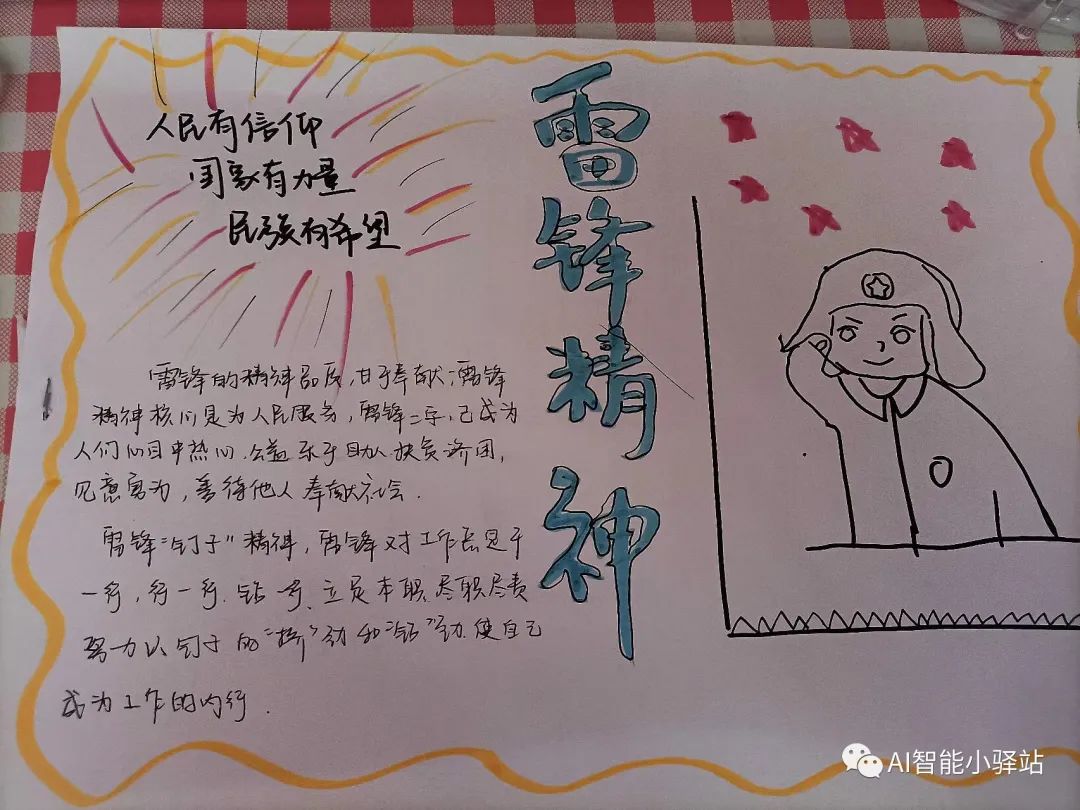 人民有信仰
国家有力量
民族有希望
雷锋精神
雷锋的精神品质,甘于奉献,雷锋
精神核心是为人民服务,雷锋二字,已成为
人们心目中热心公益乐于助人扶贫济困,
见意勇为,善待他人奉献社会.
雷锋“钉子”精神,雷锋对工作总是干
一行,行一行、钻一行、立足本职、尽职尽责
努力以钉子的“挤”劲和“钻”劲,使自己
成为工作的内行.
AI智能小驿站